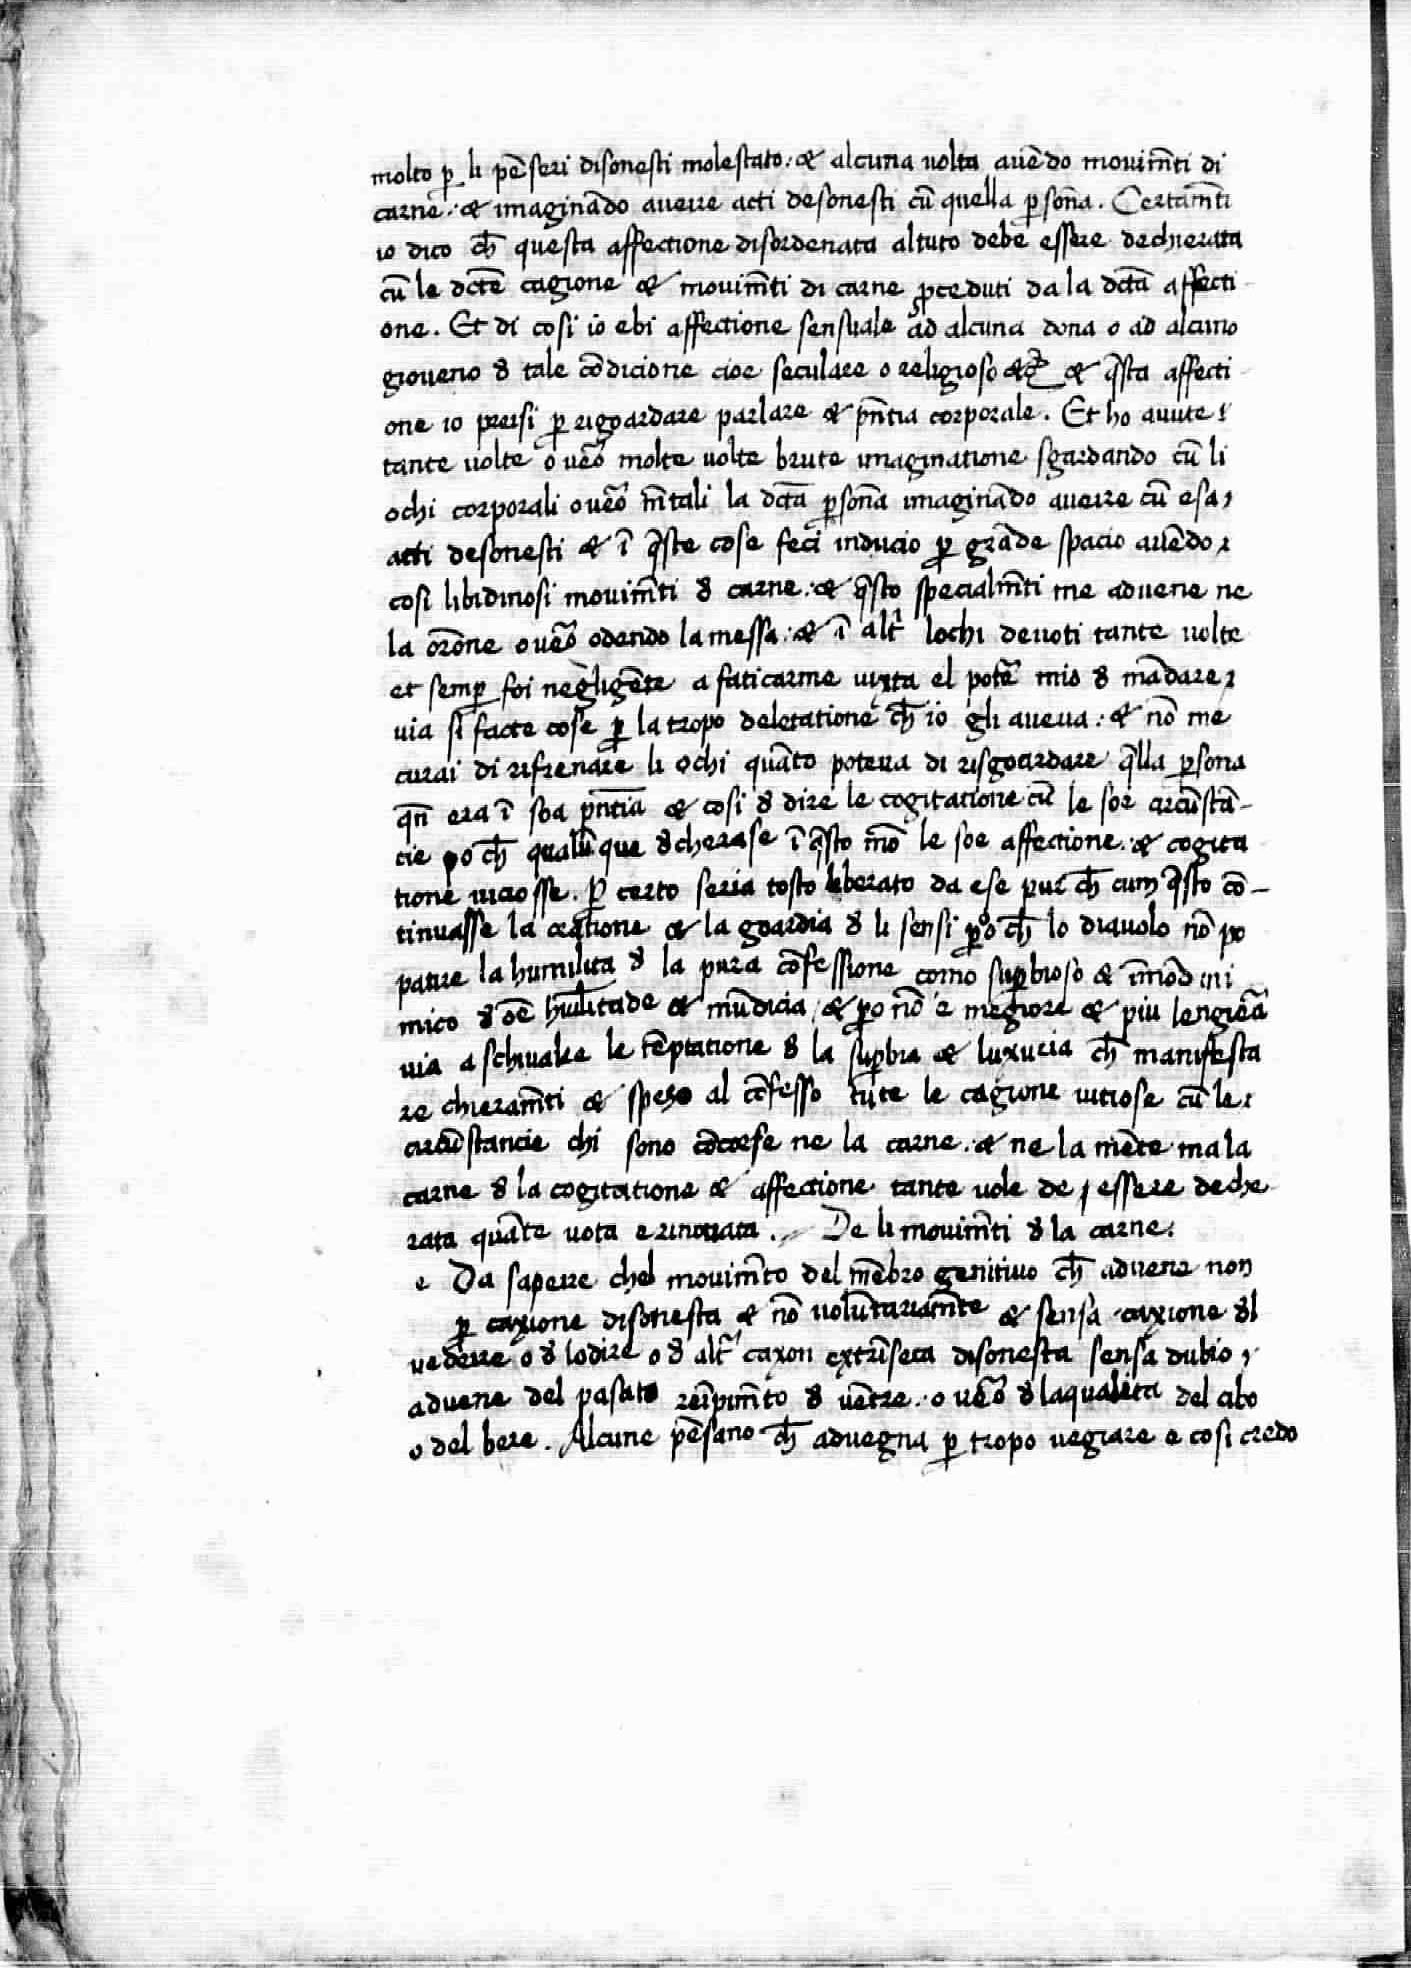 molto ꝑ li pēseri disonesti molestato. & alcuna uolta auēdo mouim̄ti di
carne. & imaginādo auere acti desonesti cū quella ꝑsona. Certam̄ti
io dico ch̄ questa affectione disordenata al tuto debe essere dechierata
cū le dcte cagione & mouim̄ti di carne ꝓceduti da la dcta affecti
one. Et di cosi io ebi affectione sensuale ad alcuna dona o ad alcuno
gioueno d tale cōdicione cioe seculare o religioso &c̄ & q̄sta affecti
one io preisi ꝑ rigoardare parlare & pn̄tia corporale. Et ho auute
tante uolte o uēo molte uolte brute imaginatione sgardando cū li
ochi corporali o uēo m̄tali la dcta ꝑsona imaginādo auere cū esa
acti desonesti & ī q̄ste cose feci inducio ꝑ grāde spacio auēdo
cosi libidinosi mouim̄ti d carne. & q̄sto specialm̄ti me aduene ne
la orōne o uēo odendo la messa. & ī alt̄ lochi deuoti tante uolte
et semꝑ foi negligēte a faticarme iuxta el pote mio d mādare
uia si facte cose ꝑ la tropo deletatione ch̄ io gli aueua. & nō me
curai di rifrenare li ochi quāto poteua di risgoardare q̄lla ꝑsona
qn̄ era ī soa pn̄tia & cosi d dire le cogitatione cū le sor circūstā-
cie ꝑo ch̄ qualūque dcherase ī q̄sto mō le soe affectione. & cogita
tione uiciosse. ꝑ certo seria tosto leberato da ese pur ch̄ cum q̄sto cō-
tinuasse la oratione & la goardia d li sensi ꝑo ch̄ lo diauolo nō po
patire la humilita d la pura cōfessione como suꝑbioso & īmōd ini
mico d oē humilitade & mūdicia / & ꝑo nō e megiore & piu
uia a schiuare le tēptatione d la suꝑbia & luxuria ch̄ manifesta
re chieram̄ti & speso al cōfesso tute le cagione uitiose cū le
circūstancie chi sono cōcorse ne la carne. & ne la mēte ma la
carne d la cogitatione & affectione tante uole de essere deche
rata quāte uota e rinouata. De li mouim̄ti d la carne.
e Da sapere chel mouim̄to del mēbro genitiuo ch̄ aduene non
ꝑ caxione disonesta & nō uolūtariam̄te & sensa caxione dl
uedere o d lodire o d alt̄ caxon extrīseca disonesta sensa dubio
aduene del pasato reīpim̄to d uētre. o uēo d la qualita del cibo
o del bere. Alcune pēsano ch̄ aduegna ꝑ tropo uegiare e cosi credo